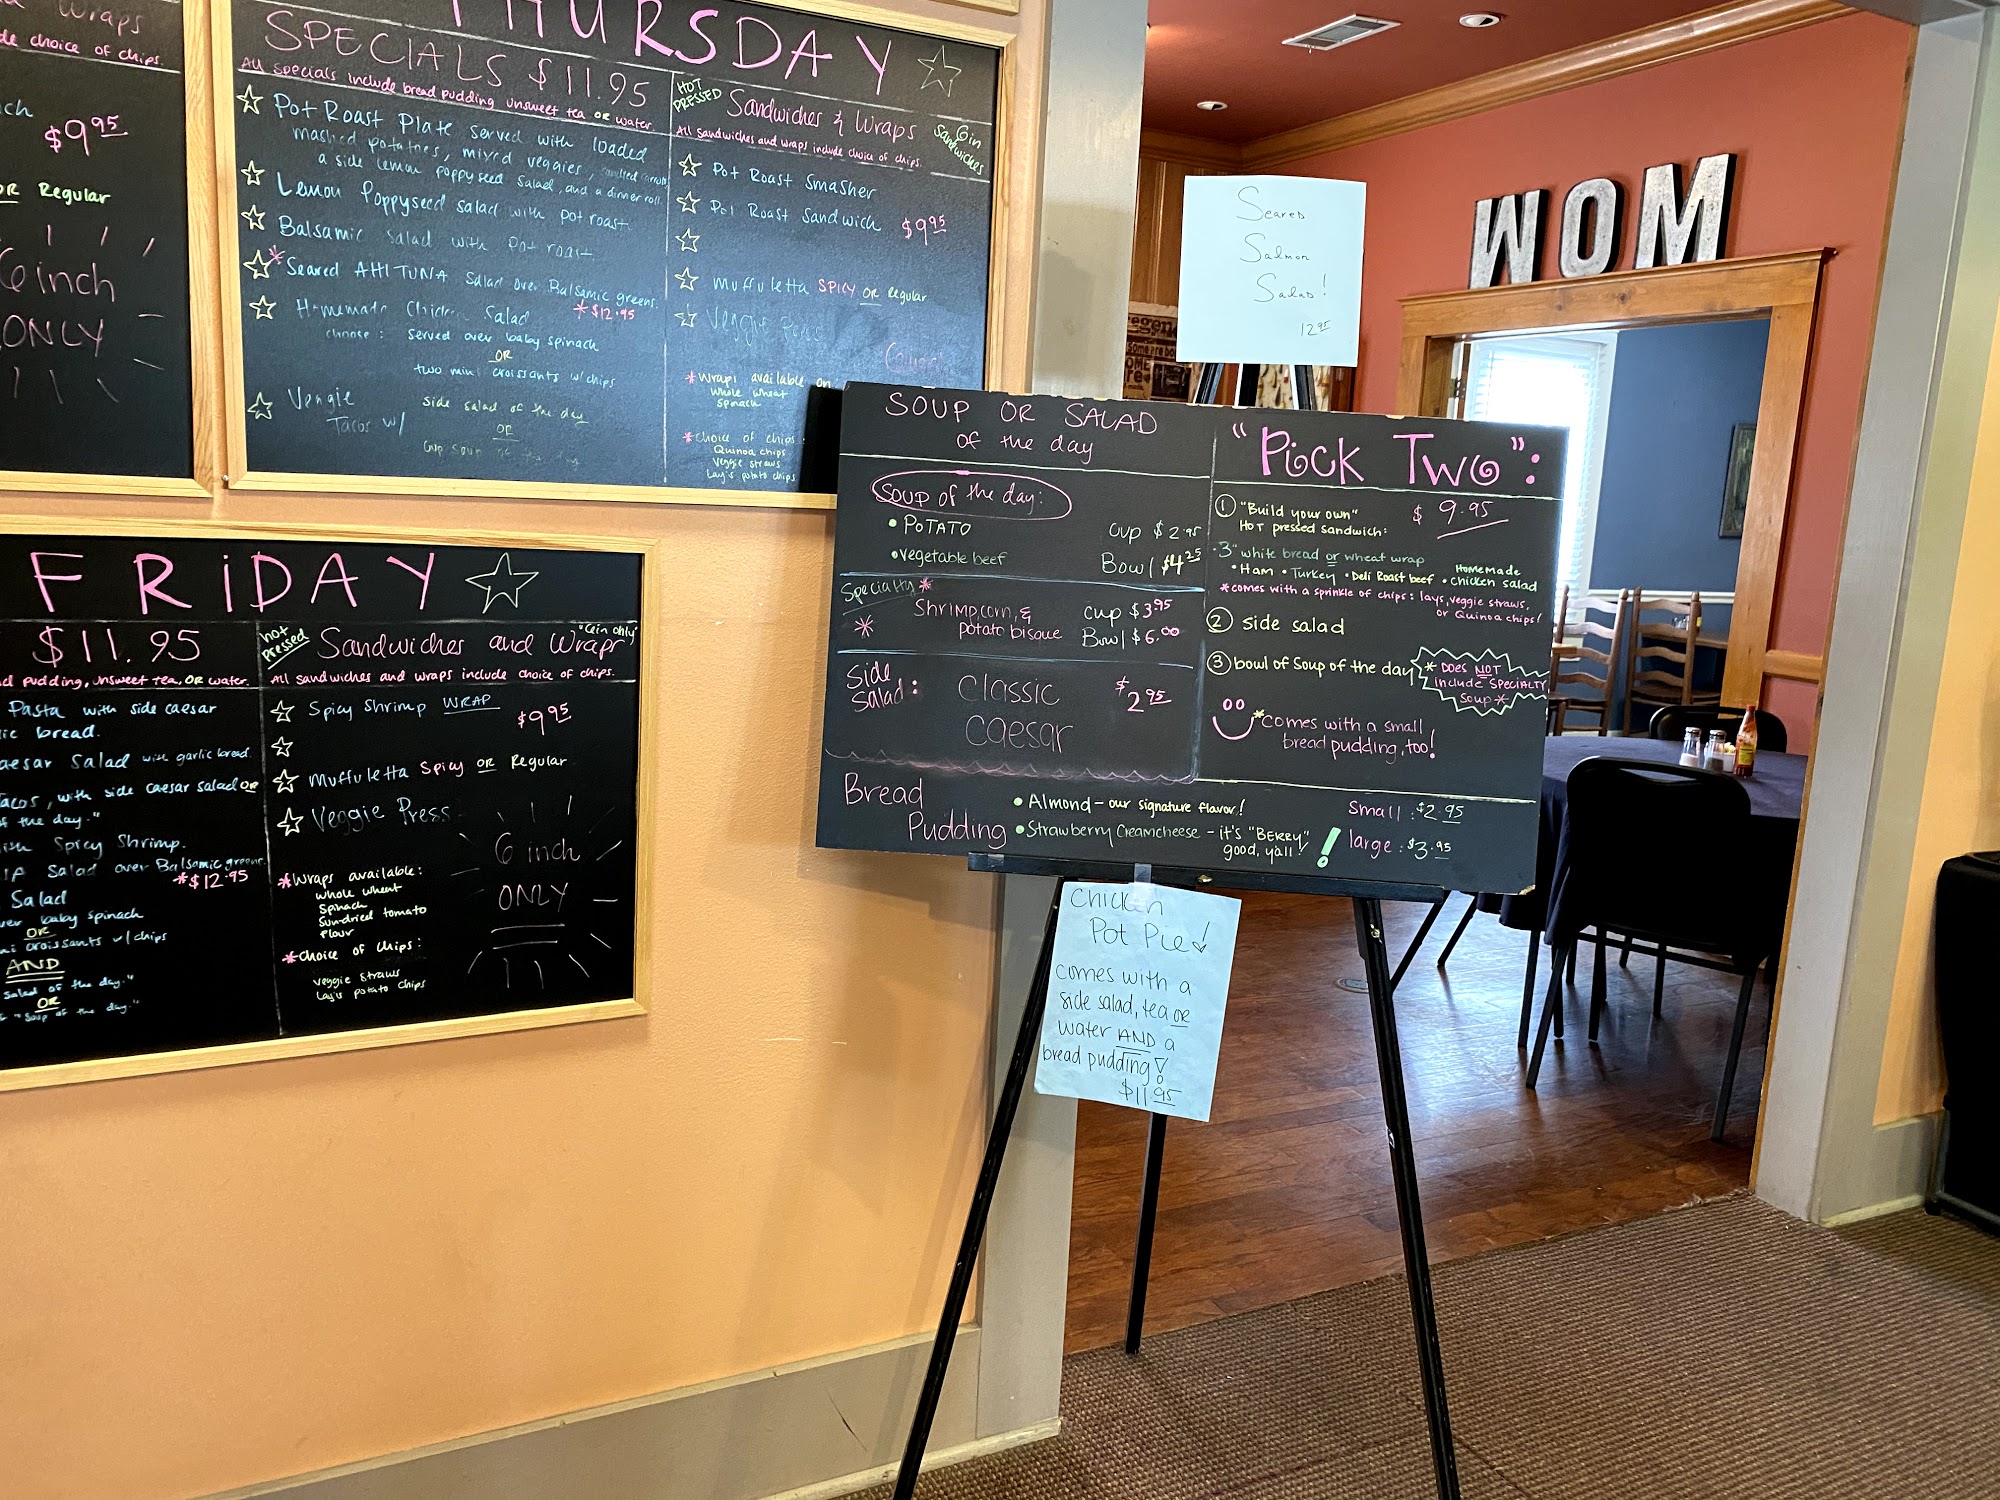 Wraps
de choice of chips.
ich
$9.95
OR Regular
6 inch
ONLY
THURSDAY
SPECIALS $11.95
All specials include bread pudding unsweet tea OR water.
Pot Roast Plate served with loaded
mashed potatoes, mixed veggies,
a side lemon poppyseed salad, and a dinner roll.
Lemon Poppyseed salad with pot roast
Balsamic salad with pot roast
*Seared AHI TUNA Salad over Balsamic greens.
*$12.95
Homemade Chicken Salad
choose: served over baby spinach
OR
two mini croissants w/chips
Veggie
Tacos w/
side salad of the day
OR
Cup soup of the day
HOT PRESSED
Sandwiches & Wraps
6in Sandwiches
All sandwiches and wraps include choice of chips.
Pot Roast Smasher
Pot Roast Sandwich $9.95
Muffuletta SPICY OR Regular
Veggie Press
*Wraps available on
whole wheat
spinach
*Choice of chips:
Quinoa chips
Veggie straws
Lay's potato chips
FRIDAY
$11.95
d pudding, unsweet tea, OR water.
Pasta with side caesar
ic bread.
aesar Salad with garlic bread.
Tacos, with side caesar salad OR
f the day."
ith Spicy Shrimp.
Salad over Balsamic greens.
*$12.95
Salad
ver baby spinach
OR
ni croissants w/chips
AND
salad of the day."
OR
"soup of the day."
hot pressed
Sandwiches and Wraps
"6in only"
All sandwiches and wraps include choice of chips.
Spicy Shrimp WRAP
$9.95
Muffuletta Spicy OR Regular
Veggie Press
6 inch
ONLY
*Wraps available:
whole wheat
Spinach
Sun-dried tomato
flour
*Choice of chips:
veggie straws
Lay's potato chips
Seared
Salmon
Salad!
12.95
MOM
SOUP OR SALAD
of the day
Soup of the day:
• POTATO
• vegetable beef
cup $2.95
Bowl $4.25
Specialty *
* Shrimp, corn, &
potato bisque
cup $3.95
Bowl $6.00
Side
Salad:
Classic
Caesar
$2.95
"Pick Two":
$9.95
1 "Build your own"
Hot pressed sandwich:
-3" white bread or wheat wrap
• Ham • Turkey • Deli Roast beef • Homemade chicken salad
*comes with a sprinkle of chips: lays, veggie straws,
or Quinoa chips!
2 side salad
3 bowl of Soup of the day
*DOES NOT
include SPECIALTY
soup*
*Comes with a small
bread pudding, too!
Bread
Pudding
• Almond - our signature flavor!
• Strawberry Creamcheese - it's "BERRY"
good, y'all!
Small: $2.95
large: $3.95
Chicken
Pot Pie!
comes with a
side salad, tea or
water AND a
bread pudding!
$11.95